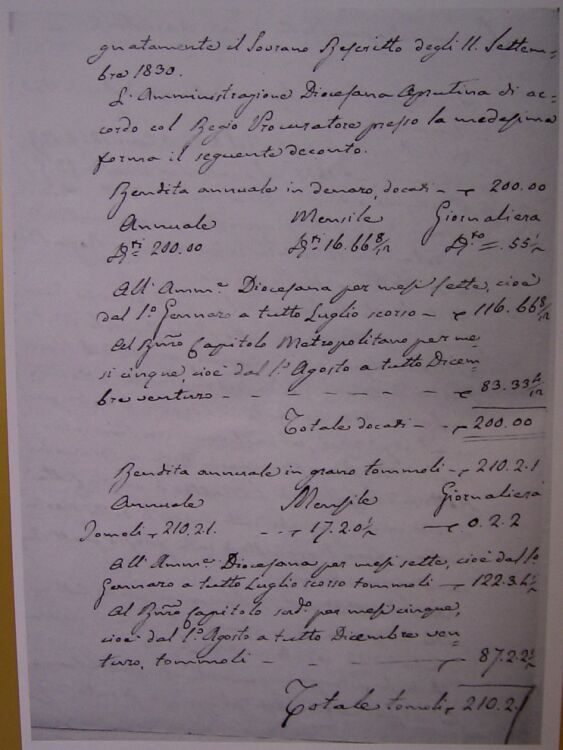 gnatamente il Sovrano Rescritto degli 11. Settem=
bre 1830.
L'Amministrazione Diocesana Aprutina di ac=
cordo col Regio Procuratore presso la medesima
forma il seguente deconto.
Rendita annuale in denaro, docati - 200.00
Annuale Mensile Giornaliera
D.ti 200.00 D.ti 16.66 8/12 D.to =.55 1/2
All'Amm.e Diocesana per mesi sette, cioè
dal 1.o Gennaro a tutto Luglio scorso - 116.66 8/12
Al R.mo Capitolo Metropolitano per me=
si cinque, cioè dal 1.o Agosto a tutto Dicem=
bre venturo - - - - - - - 83.33 4/12
Totale docati - 200.00
Rendita annuale in grano tommoli - 210.2.1
Annuale Mensile Giornaliera
Tomoli - 210.2.1. - - 17.2.0 1/2 - 0.2.2
All'Amm.e Diocesana per mesi sette, cioè dal 1.o
Gennaro a tutto Luglio scorso tommoli - 122.3.
Al R.mo Capitolo sud.o per mesi cinque,
cioè dal 1.o Agosto a tutto Dicembre ven=
turo, tommoli - - - 87.2.
Totale tomoli 210.2.1